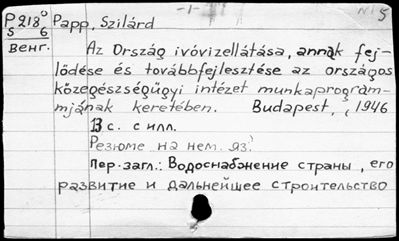 -1- N 5
P 218⁰ Papp, Szilárd
5 6
венг. Az Ország ivóvizellátása, annak fej-
lődése és továbbfejlesztése az országos
közegészségügyi intézet munkaprogram-
mjának keretében. Budapest, 1946
13 с. с илл.
Резюме на нем. яз.
Пер.загл.: Водоснабжение страны, его
развитие и дальнейшее строительство